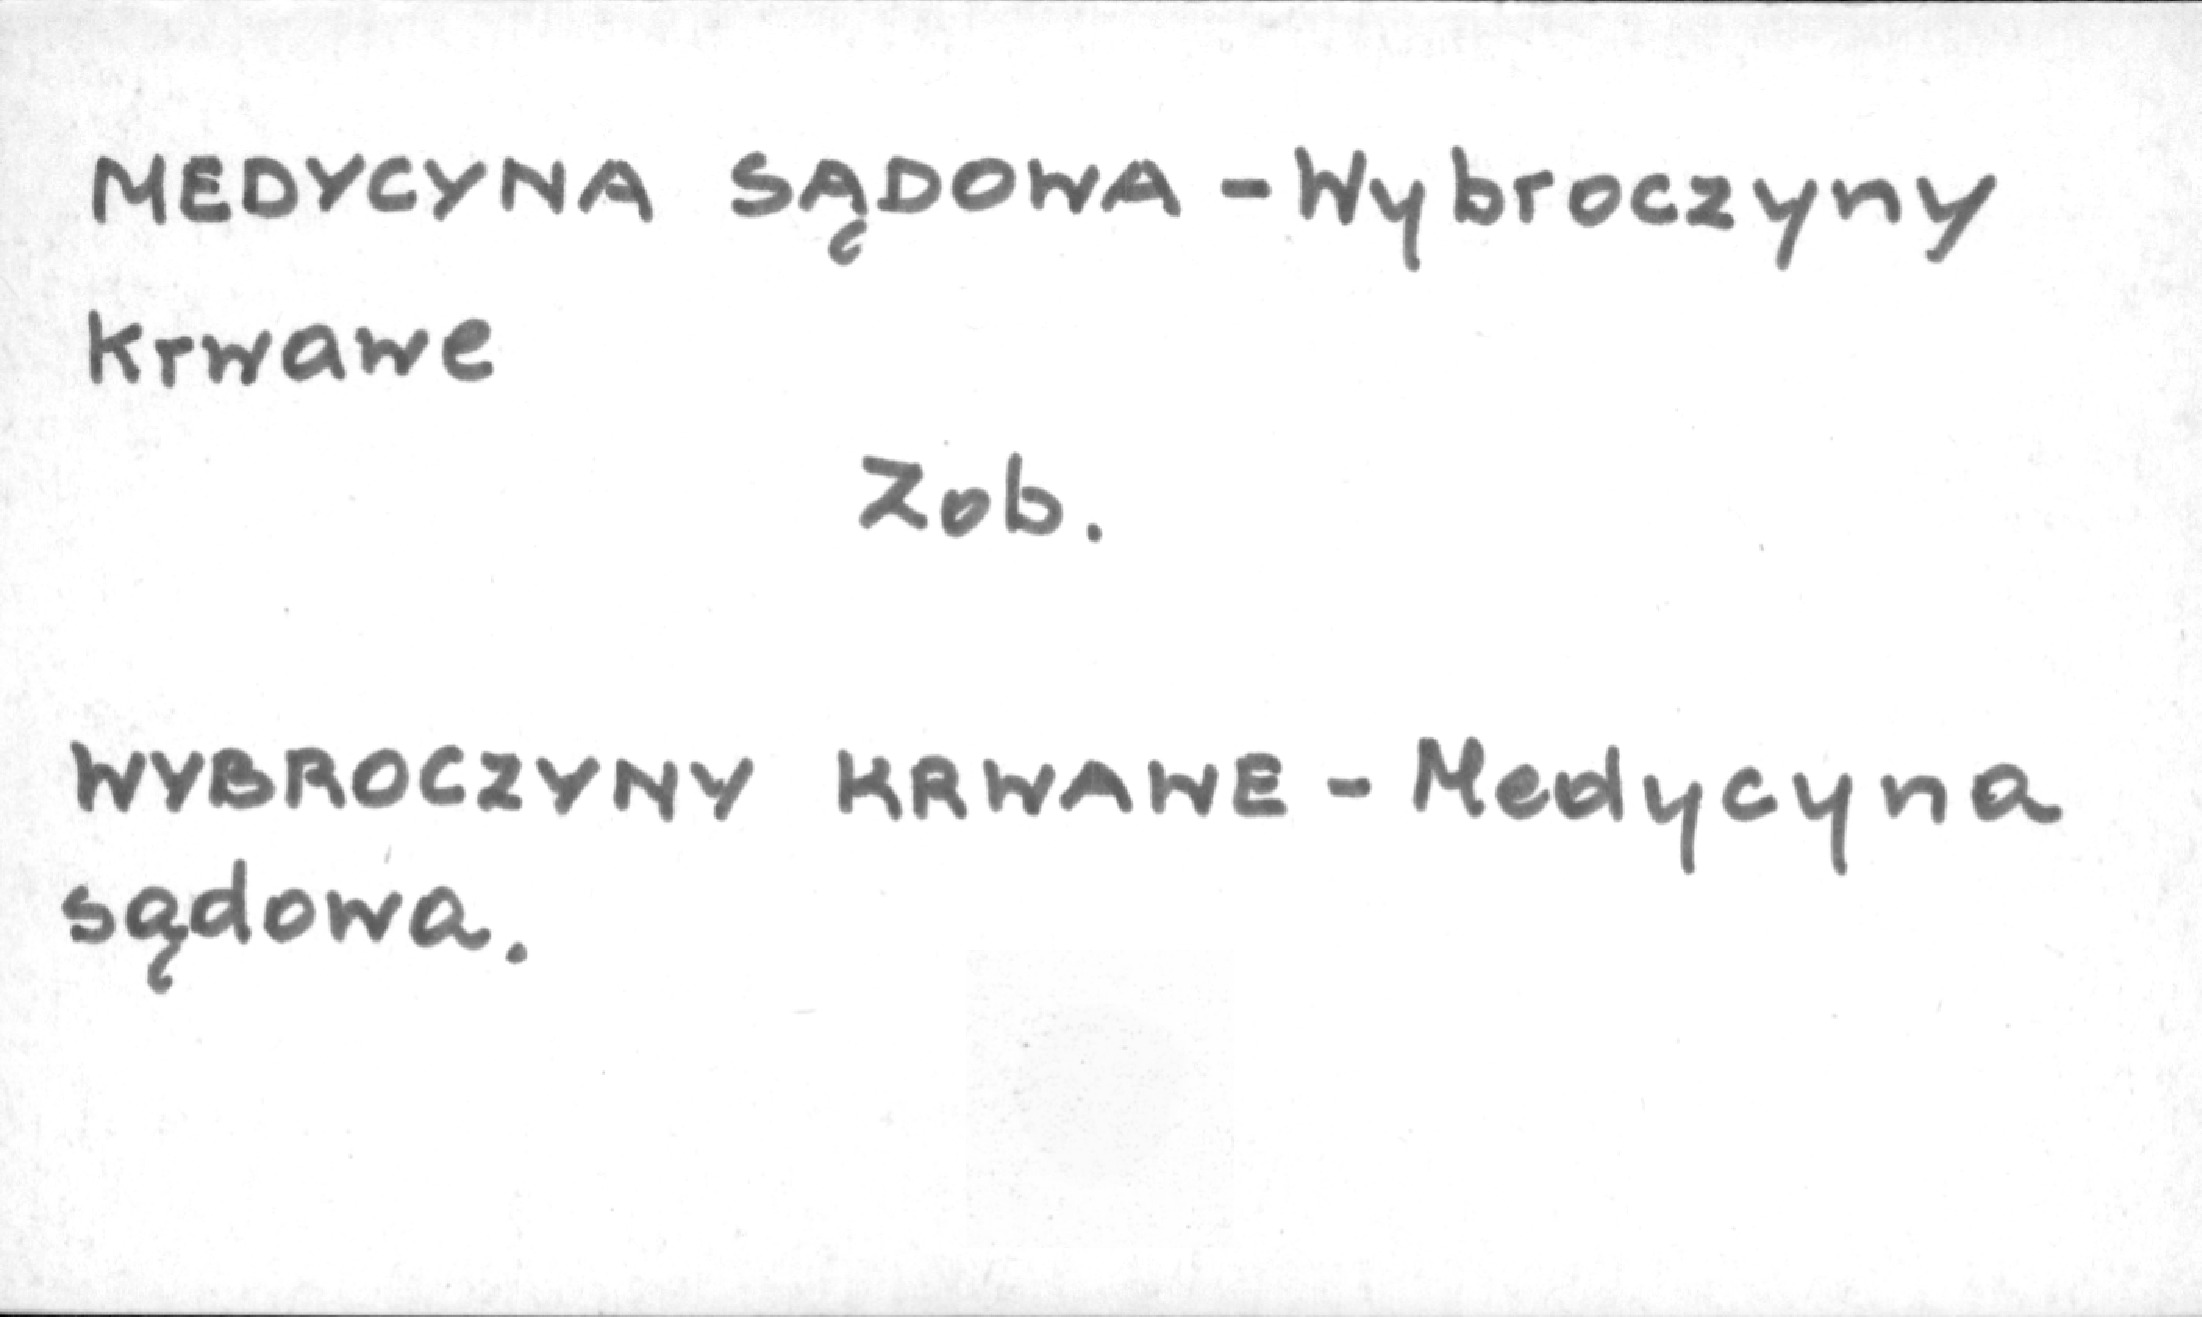 MEDYCYNA SĄDOWA - Wybroczyny
krwawe
Zob.
WYBROCZYNY KRWAWE - Medycyna
sądowa.